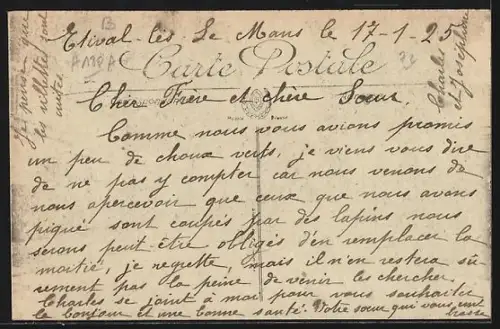 Etival-les-Le Mans le 17-1-25
Carte Postale
Cher Frère et chère Soeur
Comme nous vous avions promis
un peu de choux verts, je viens vous dire
de ne pas y compter car nous venons de
nous apercevoir que ceux que nous avons
piqué sont coupés par des lapins nous
serons peut-être obligés d'en remplacer la
moitié, je regrette, mais il n'en restera sû-
rement pas la peine de venir les chercher.
Charles se joint à moi pour vous souhaiter
le bonjour et une bonne santé. Votre soeur qui vous em-
brasse
Charles
et Joséphine
Je pense que
les rillettes sont